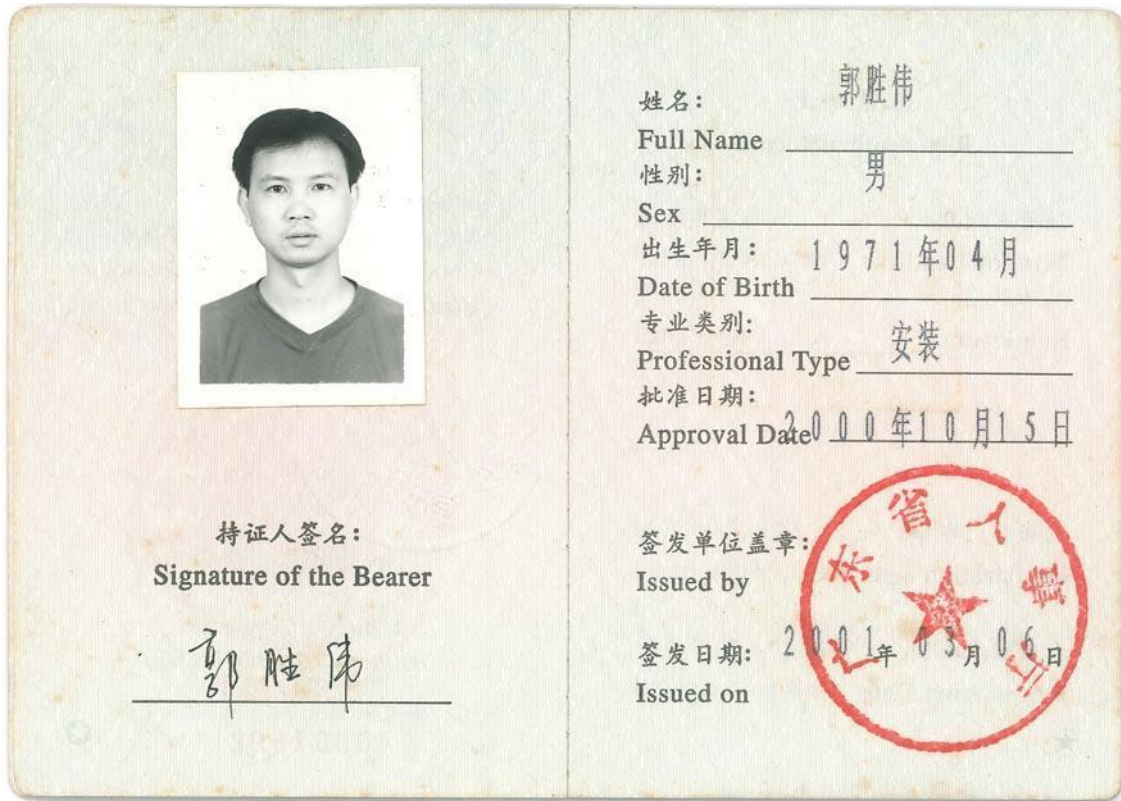 持证人签名：
Signature of the Bearer
郭胜伟
姓名： 郭胜伟
Full Name
性别： 男
Sex
出生年月： 1971年04月
Date of Birth
专业类别： 安装
Professional Type
批准日期：
Approval Date 2000年10月15日
签发单位盖章：
Issued by
广东省人事厅
签发日期： 2001年03月06日
Issued on